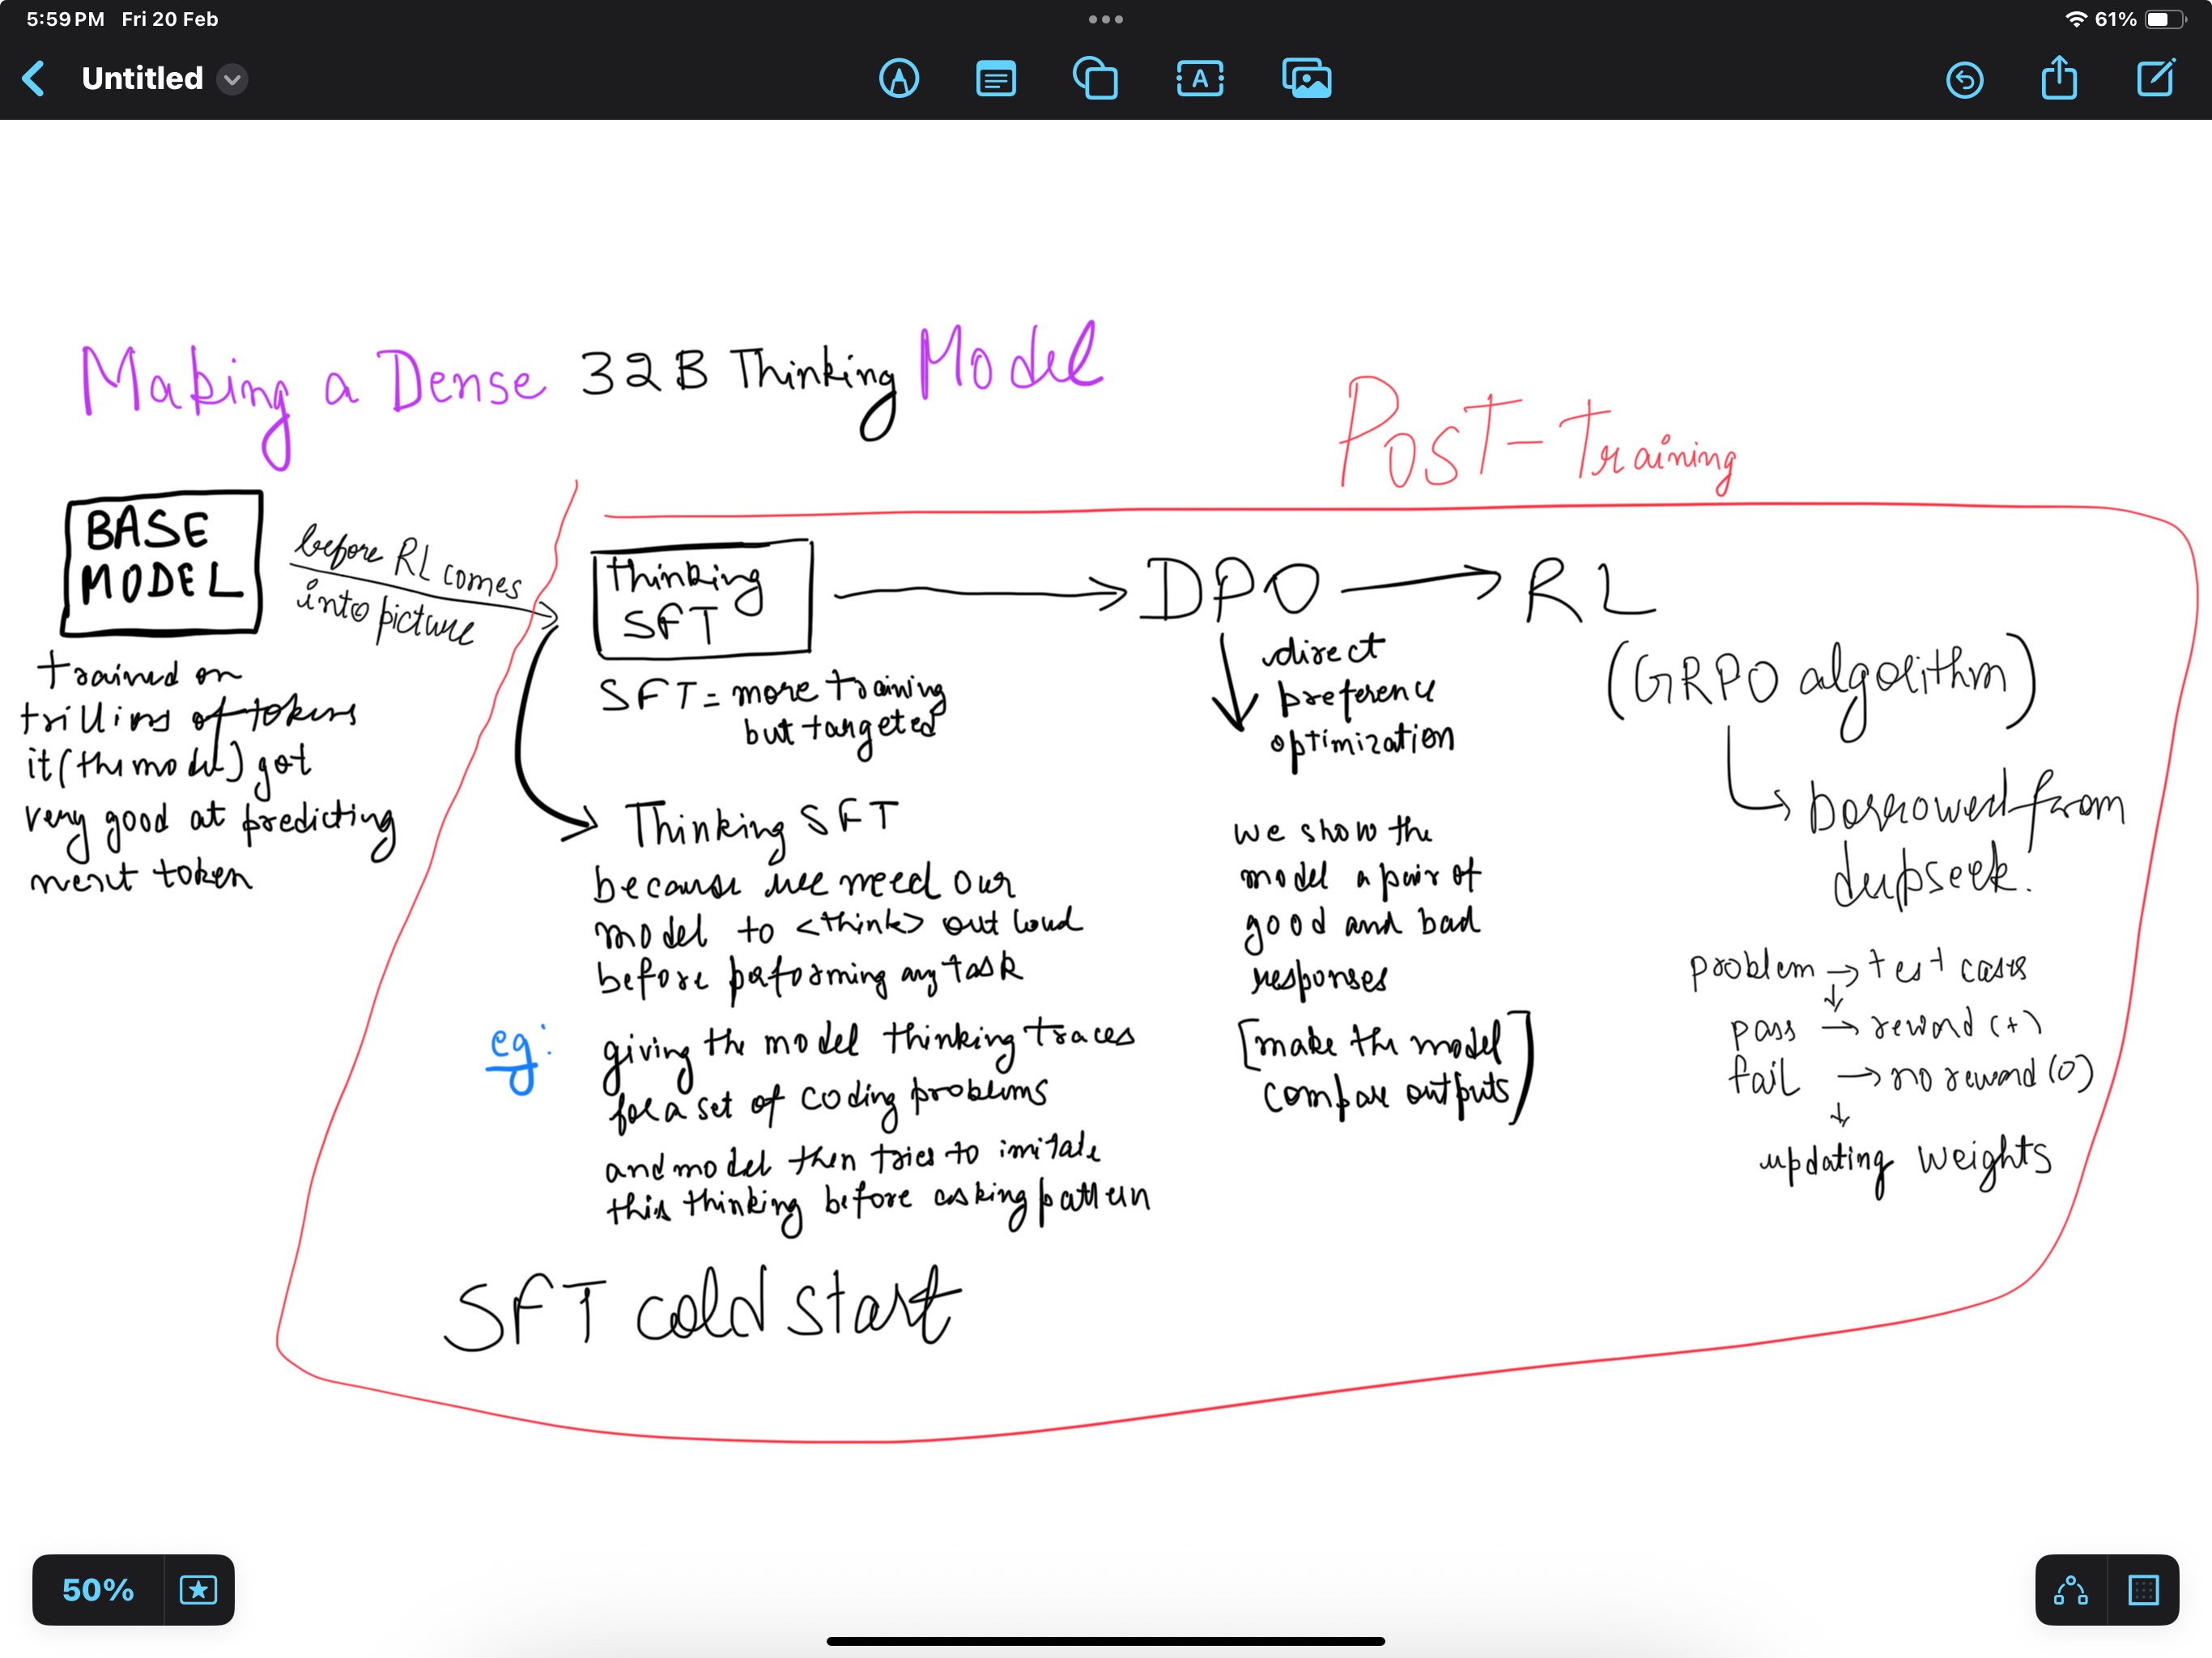 5:59 PM Fri 20 Feb
61%
Untitled
Making a Dense 32B Thinking Model
Post-Training
BASE
MODEL
before RL comes
into picture
trained on
trillions of tokens
it (the model) got
very good at predicting
next token
thinking
SFT
SFT = more training
but targeted
Thinking SFT
because we need our
model to <think> out loud
before performing any task
eg:
giving the model thinking traces
for a set of coding problems
and model then tries to imitate
this thinking before asking pattern
SFT cold start
DPO
direct
preference
optimization
we show the
model a pair of
good and bad
responses
[make the model
compare outputs]
RL
(GRPO algorithm)
borrowed from
deepseek.
problem → test cases
pass → reward (+)
fail → no reward (0)
updating weights
50%